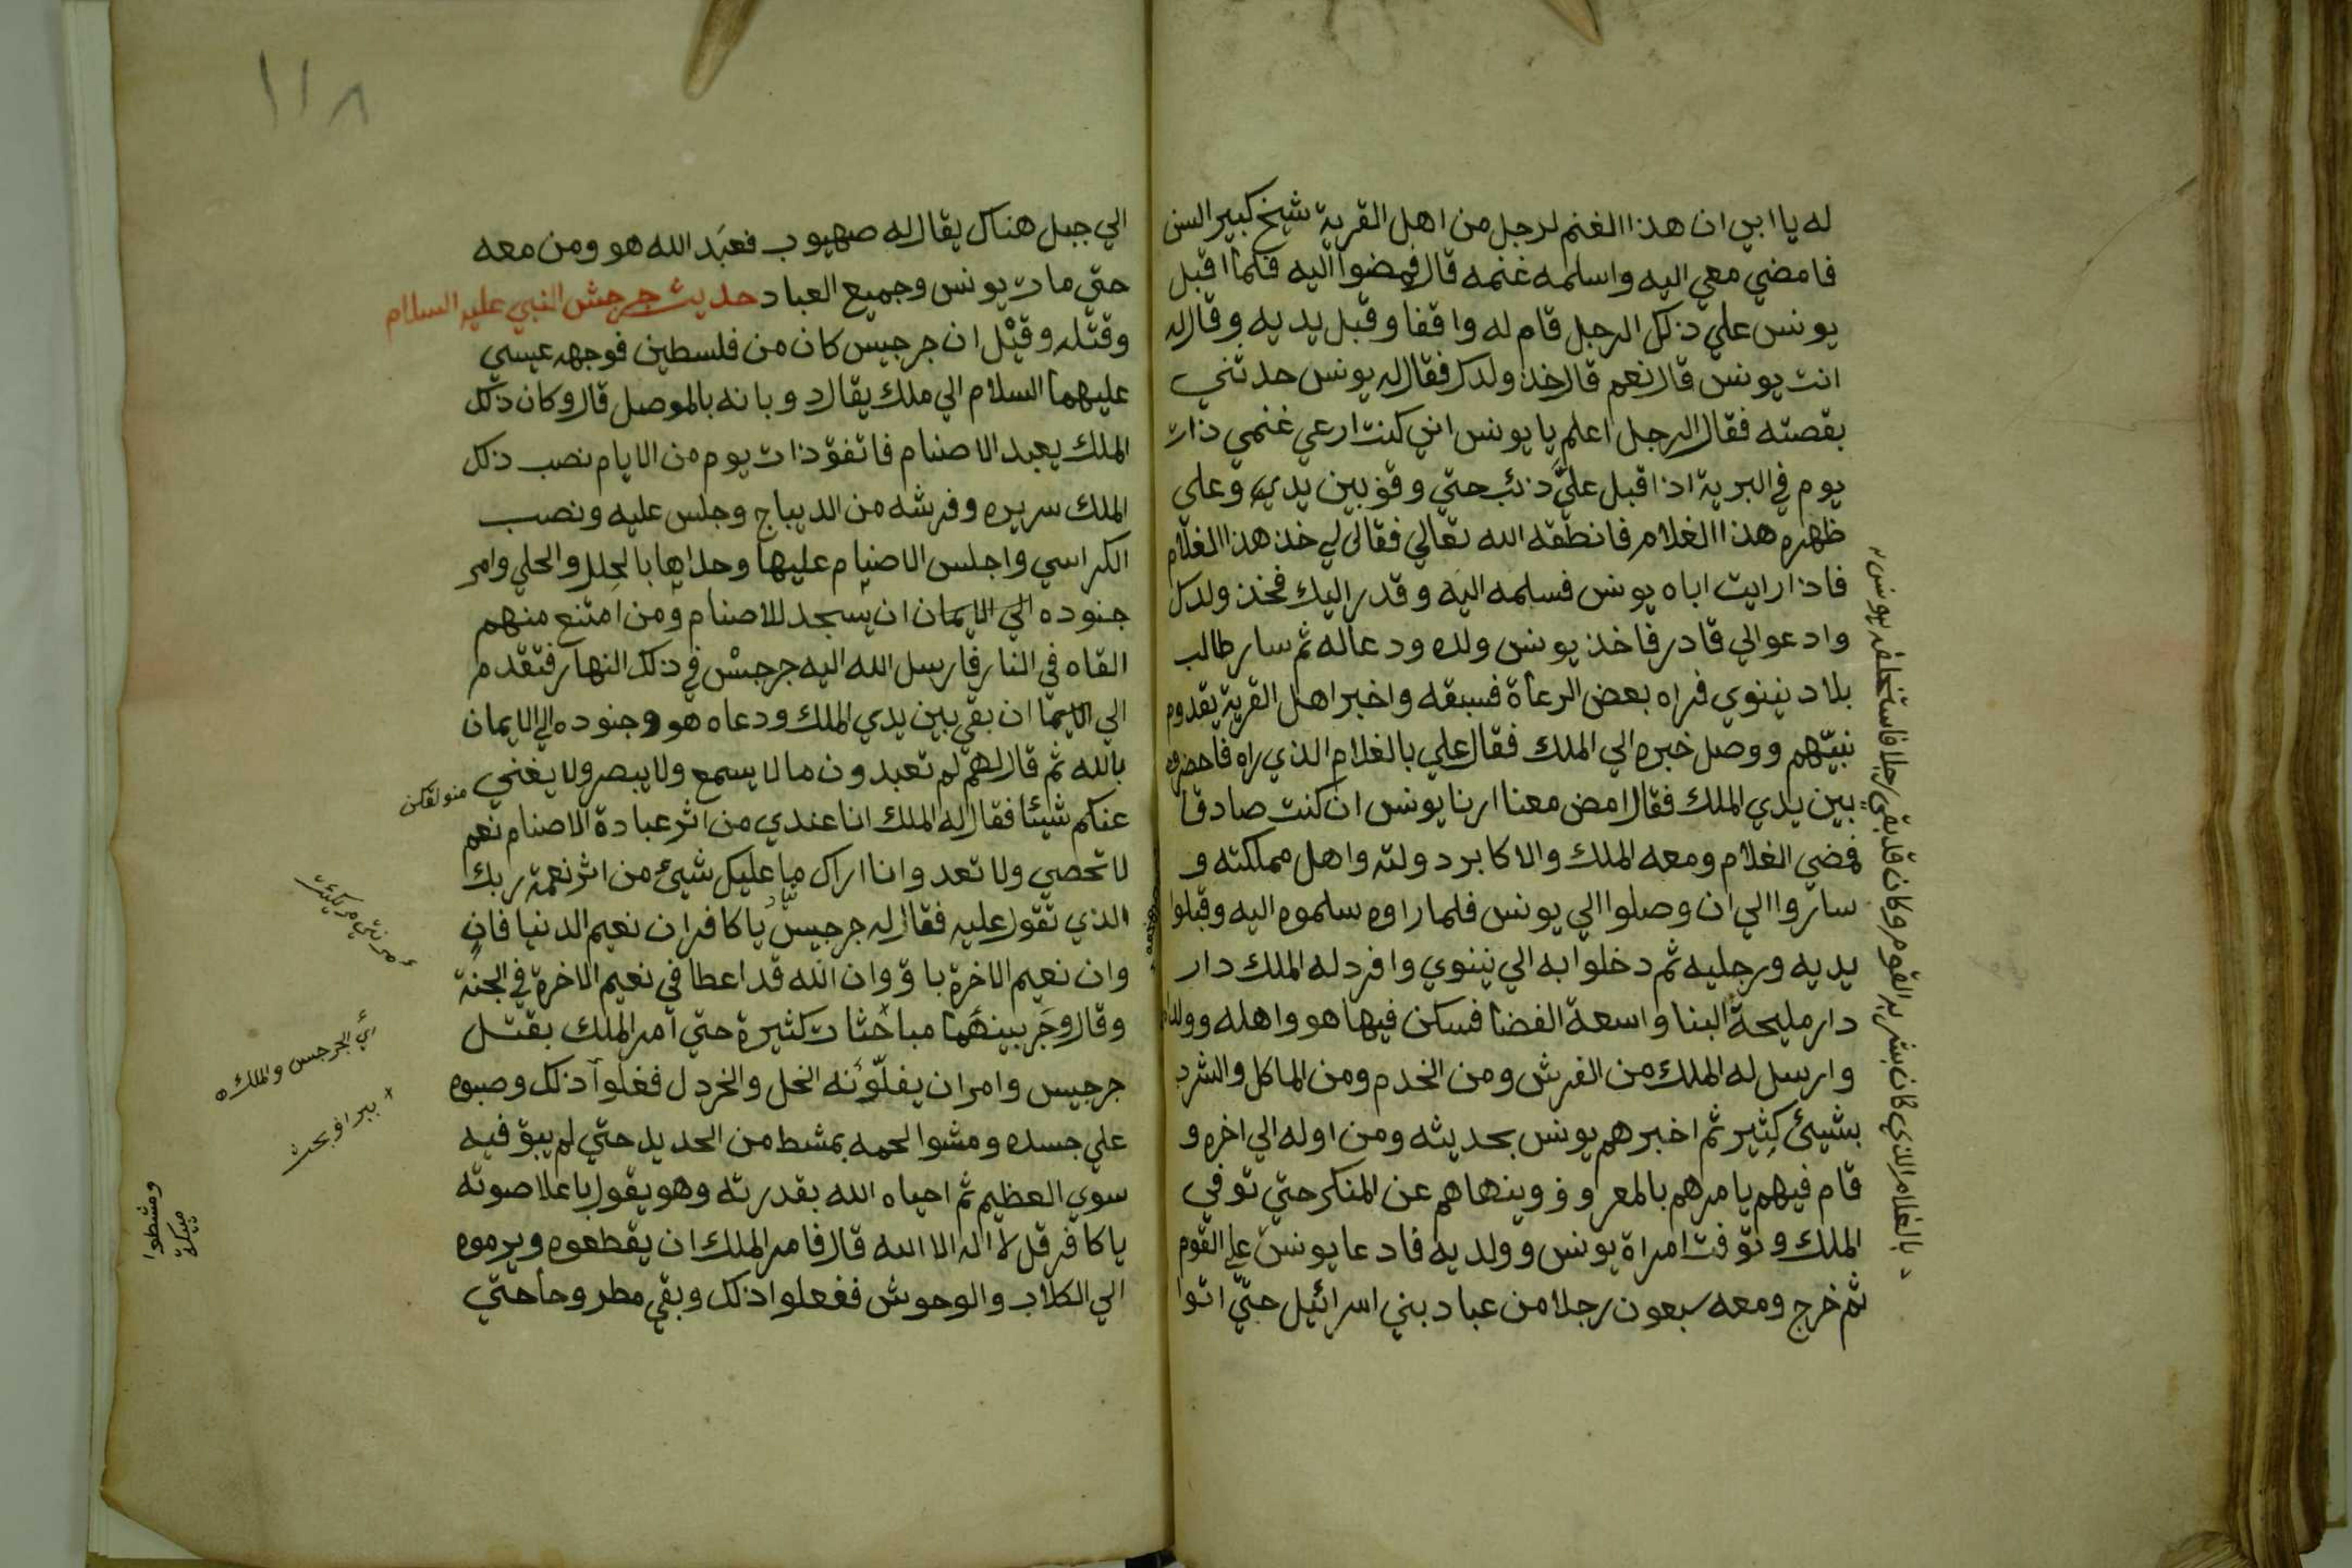 له يا ابي ان هذا الغنم لرجل من اهل القرية شيخ كبير السن
فامضي معي اليه واسلمه غنمه قال فمضوا اليه فلما اقبل
يونس علي ذلك الرجل قام له واقفا وقبل يديه وقال له
انت يونس قال نعم قال خذ ولدك فقال له يونس حدثني
بقصته فقال الرجل اعلم يا يونس اني كنت ارعي غنمي ذات
يوم في البرية اذا اقبل عليَّ ذئب حتي وقف بين يدي وعلي
ظهره هذا الغلام فانطقه الله تعالي فقال لي خذ هذا الغلام
فاذا رايت اباه يونس فسلمه اليه وقدر اليك فخذ ولدك
وادعوا لي قادر فاخذ يونس ولده ودعا له ثم سار طالب
بلاد نينوي فراه بعض الرعاة فسبقه واخبر اهل القرية بقدوم
نبيّهم ووصل خبره الي الملك فقال علي بالغلام الذي راه فاحضروه
بين يدي الملك فقال امض معنا ارنا يونس ان كنت صادقا
فمضي الغلام ومعه الملك والاكابر دولته واهل مملكته و
ساروا الي ان وصلوا الي يونس فلما راوه سلموه اليه وقبلوا
يديه ورجليه ثم دخلوا به الي نينوي وافرد له الملك دار
دار مليحة البنا واسعة الفضا فسكن فيها هو واهله وولداه
وارسل له الملك من الفرش ومن الخدم ومن الماكل والشرب
بشيئ كثير ثم اخبرهم يونس بحديثه ومن اوله الي اخره و
قام فيهم يامرهم بالمعروف وينهاهم عن المنكر حتي توفي
الملك وتوفت امراة يونس وولديه فادعا يونس علي القوم
ثم خرج ومعه سبعون رجلا من عباد بني اسرائيل حتّي اتوا
رجلا فاستخلفه يونس
بالغلام الذي كان بشر به القوم وكان قد بقي
١١٨
الي جبل هناك يقال له صهيوب فعبَد الله هو ومن معه
حتي مات يونس وجميع العباد حديث جرجش النبي عليه السلام
وقتله وقيْل ان جرجيس كان من فلسطين فوجهه عيسي
عليهما السلام الي ملك يقال دوبانه بالموصل قال وكان ذلك
الملك يعبد الاصنام فاتفق ذات يوم من الايام نصب ذلك
الملك سريره وفرشه من الديباج وجلس عليه ونصب
الكراسي واجلس الاصنام عليها وحلاها بالحلل والحلي وامر
جنوده الي الايمان ان يسجد للاصنام ومن امتنع منهم
القاه في النار فارسل الله اليه جرجسْ في ذلك النهار فتقدم
الي الايما ان بقي بين يدي الملك ودعاه هو وجنوده الي الايمان
بالله ثم قال لهم لم تعبدون ما لا يسمع ولا يبصر ولا يغني
عنكم شيئا فقال له الملك انا عندي من اثر عبادة الاصنام نعم
لا تحصي ولا تعد وانا اراك ما عليك شيئ من اثر نعمة ربك
الذي تقول عليه فقال له جرجيس يا كافر ان نعيم الدنيا فانٍ
وان نعيم الاخرة باق وان الله قد اعطا في نعيم الاخرة في الجنة
وقال وجَر بينهما مباحثات كثيرة حتي امر الملك بقتل
جرجيس وامر ان يغلّونه الخل والخردل فغلوا ذلك وصبوه
علي جسده ومشوا لحمه بمشط من الحديد حتي لم يبق فيه
سوي العظيم ثم احياه الله بقدرته وهو يقول باعلا صوته
يا كافر قل لا اله الا الله قال فامر الملك ان يقطعوه ويرموه
الي الكلاب والوحوش ففعلوا ذلك وبقي مطروحا حتي
ري الجرجس والملك
ومشطوا